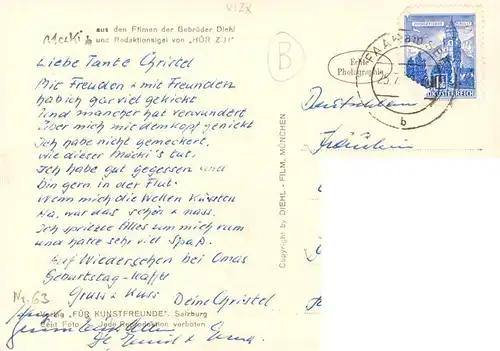 VIZx
Mecki
aus den Filmen der Gebrüder Diehl
und Redaktionsigel von "HÖR ZU!"
Liebe Tante Christel
Mit Freuden u mit Freunden
hab ich gar viel gekickt
Und mancher hat verwundert
über mich mit dem Kopf genickt
Ich habe nicht gemeckert.
wie dieser Mäcki's tut.
Ich habe gut gegessen und
bin gern in der Flut.
Wenn mich die Wellen küssten
Ha, war das schön u nass.
Ich spritze Alles um mich rum
und hatte sehr viel Spaß.
Auf Wiedersehen bei Omas
Geburtstag-Kaffe
Gruss u Kuss
Deine Christel
Nr. 63
Verlag "FÜR KUNSTFREUNDE", Salzburg
Echt Foto
Jede Reproduktion verboten
Copyright by DIEHL - FILM, MÜNCHEN
B
Echte
Photographie
FAAK am See
b
REPUBLIK ÖSTERREICH
Deutschland
Fräulein